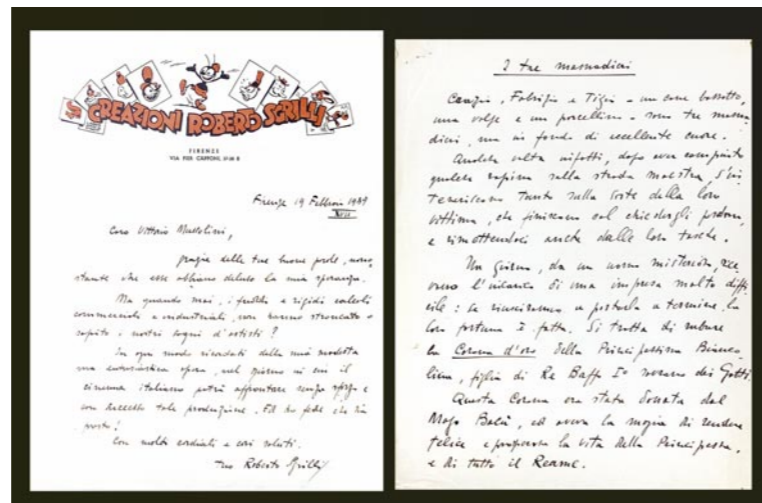 CREAZIONI ROBERTO SGRILLI
FIRENZE
VIA PIER CAPPONI,
Firenze 19 Febbraio 1939
XVII
Caro Vittorio Mussolini,
grazie delle tue buone parole, nono
stante che esse abbiano deluso la mia speranza.
Ma quando mai, i freddi e rigidi calcoli
commerciali e industriali, non hanno stroncato o
sopito i nostri sogni d'artisti?
In ogni modo ricordati della mia modesta
ma entusiastica opera, nel giorno in cui il
cinema italiano potrà affrontare senza sforzo e
con successo tale produzione. Ed ho fede che sia
presto!
Con molti cordiali e cari saluti.
tuo Roberto Sgrilli
I tre masnadieri
Fabrizio e Tigin - un cane bassotto,
una volpe e un porcellino - sono tre masna
dieri, ma in fondo di eccellente cuore.
volta infatti, dopo aver compiuto
qualche rapina sulla strada maestra, s'in
teneriscono tanto sulla sorte della loro
vittima, che finiscono col chiedergli perdono,
e rimettendoci anche dalle loro tasche.
Un giorno, da un uomo misterioso, rice
vono l'incarico di una impresa molto diffi
cile: se riusciranno a portarla a termine, la
loro fortuna è fatta. Si tratta di rubare
la Corona d'oro della Principessina Bianco
lina, figlia di Re Baffo I° sovrano dei Gatti.
Questa Corona era stata donata dal
Mago Balù, ed aveva la magia di rendere
felice e prosperosa la vita della Principessa,
e di tutto il Reame.